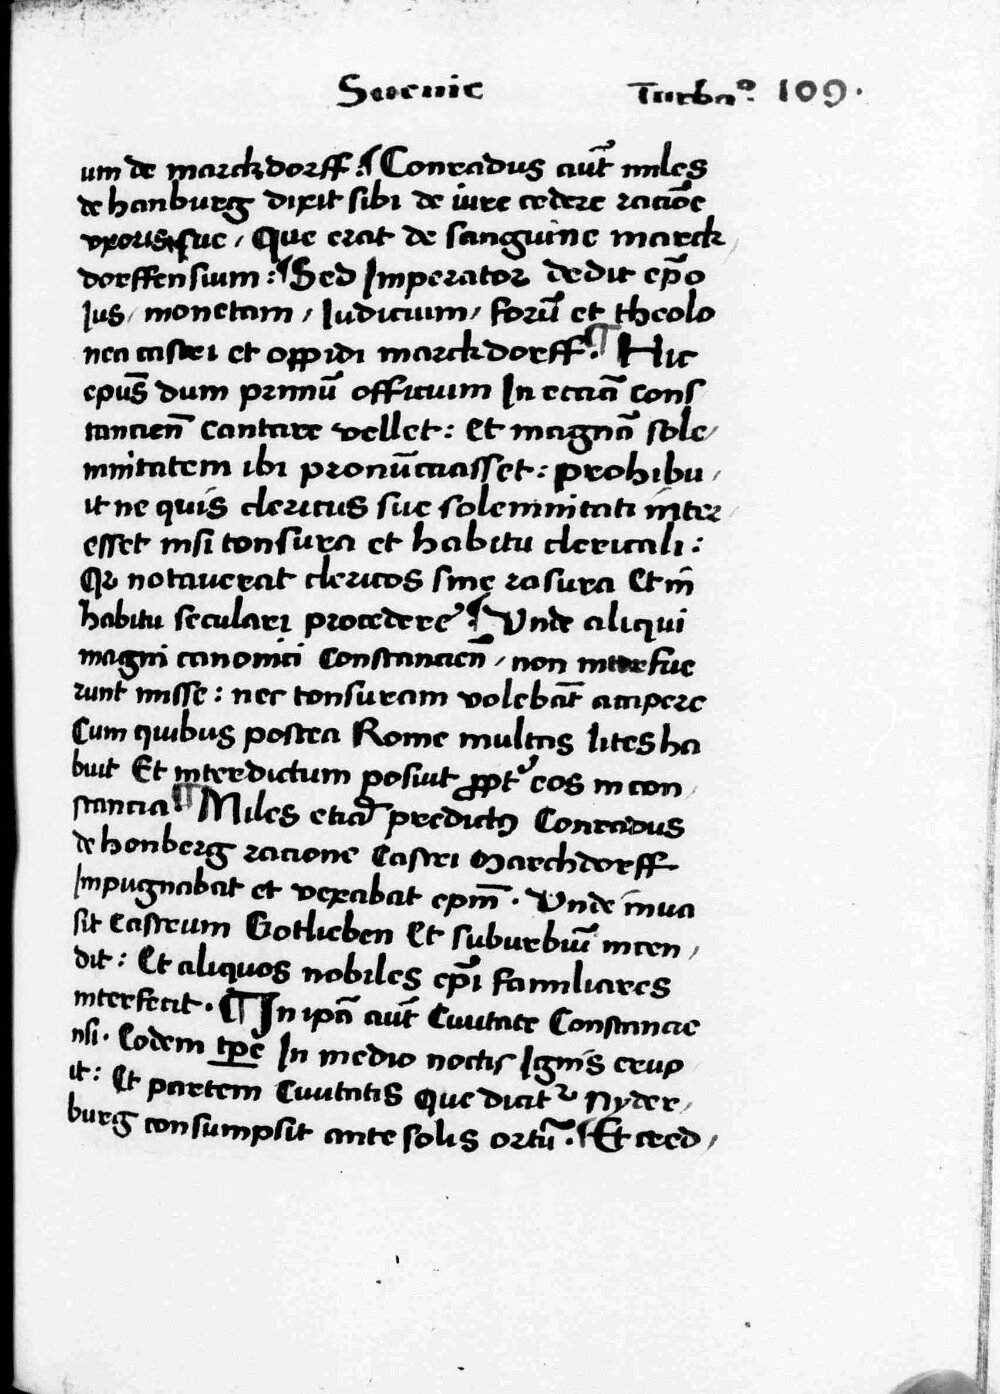 Sueuie Turba° 109.
um de marckdorff. ¶ Conradus aut̄ miles
de hanburg dixit sibi de iure cedere racōe
vxoris sue, Que erat de sanguine marck,
dorffensium: ¶ Sed Imperator dedit ep̄o
Ius, monetam, Iudicium, forū et theolo
nea castri et oppidi marckdorff. ¶ Hic
epūs dum primū officium In ecciā cons
tancien̄ cantare vellet: Et magnā sole,
mnitatem ibi pronūciasset: prohibu,
it ne quis clericus sue solemnitati inter,
esset nisi tonsura et habitu clericali:
Qr notauerat clericos sine rasura Et in̄
habitu seculari procedere. ¶ Vnde aliqui
magni canonici Constancien̄, non interfue
runt misse: nec tonsuram volebāt accipere
Cum quibus postea Rome multas lites ha
buit Et interdictum posiuit ꝓpt' eos in con,
stancia. ¶ Miles etiā predictꝰ Conradus
de honberg racione Castri Marchdorff
Impugnabat et vexabat epm̄. Vnde inua
sit Castrum Gotlieben Et suburbiū incen,
dit: Et aliquos nobiles ep̄i familiares
interfecit. ¶ In ipā aut̄ Ciuitate Constancie
nsi. Eodem tp̄e In medio noctis Ignis erup
it: Et partem Ciuitatis Que dicit᷑ Nyder,
burg consumpsit ante solis ortū. ¶ Et cred,